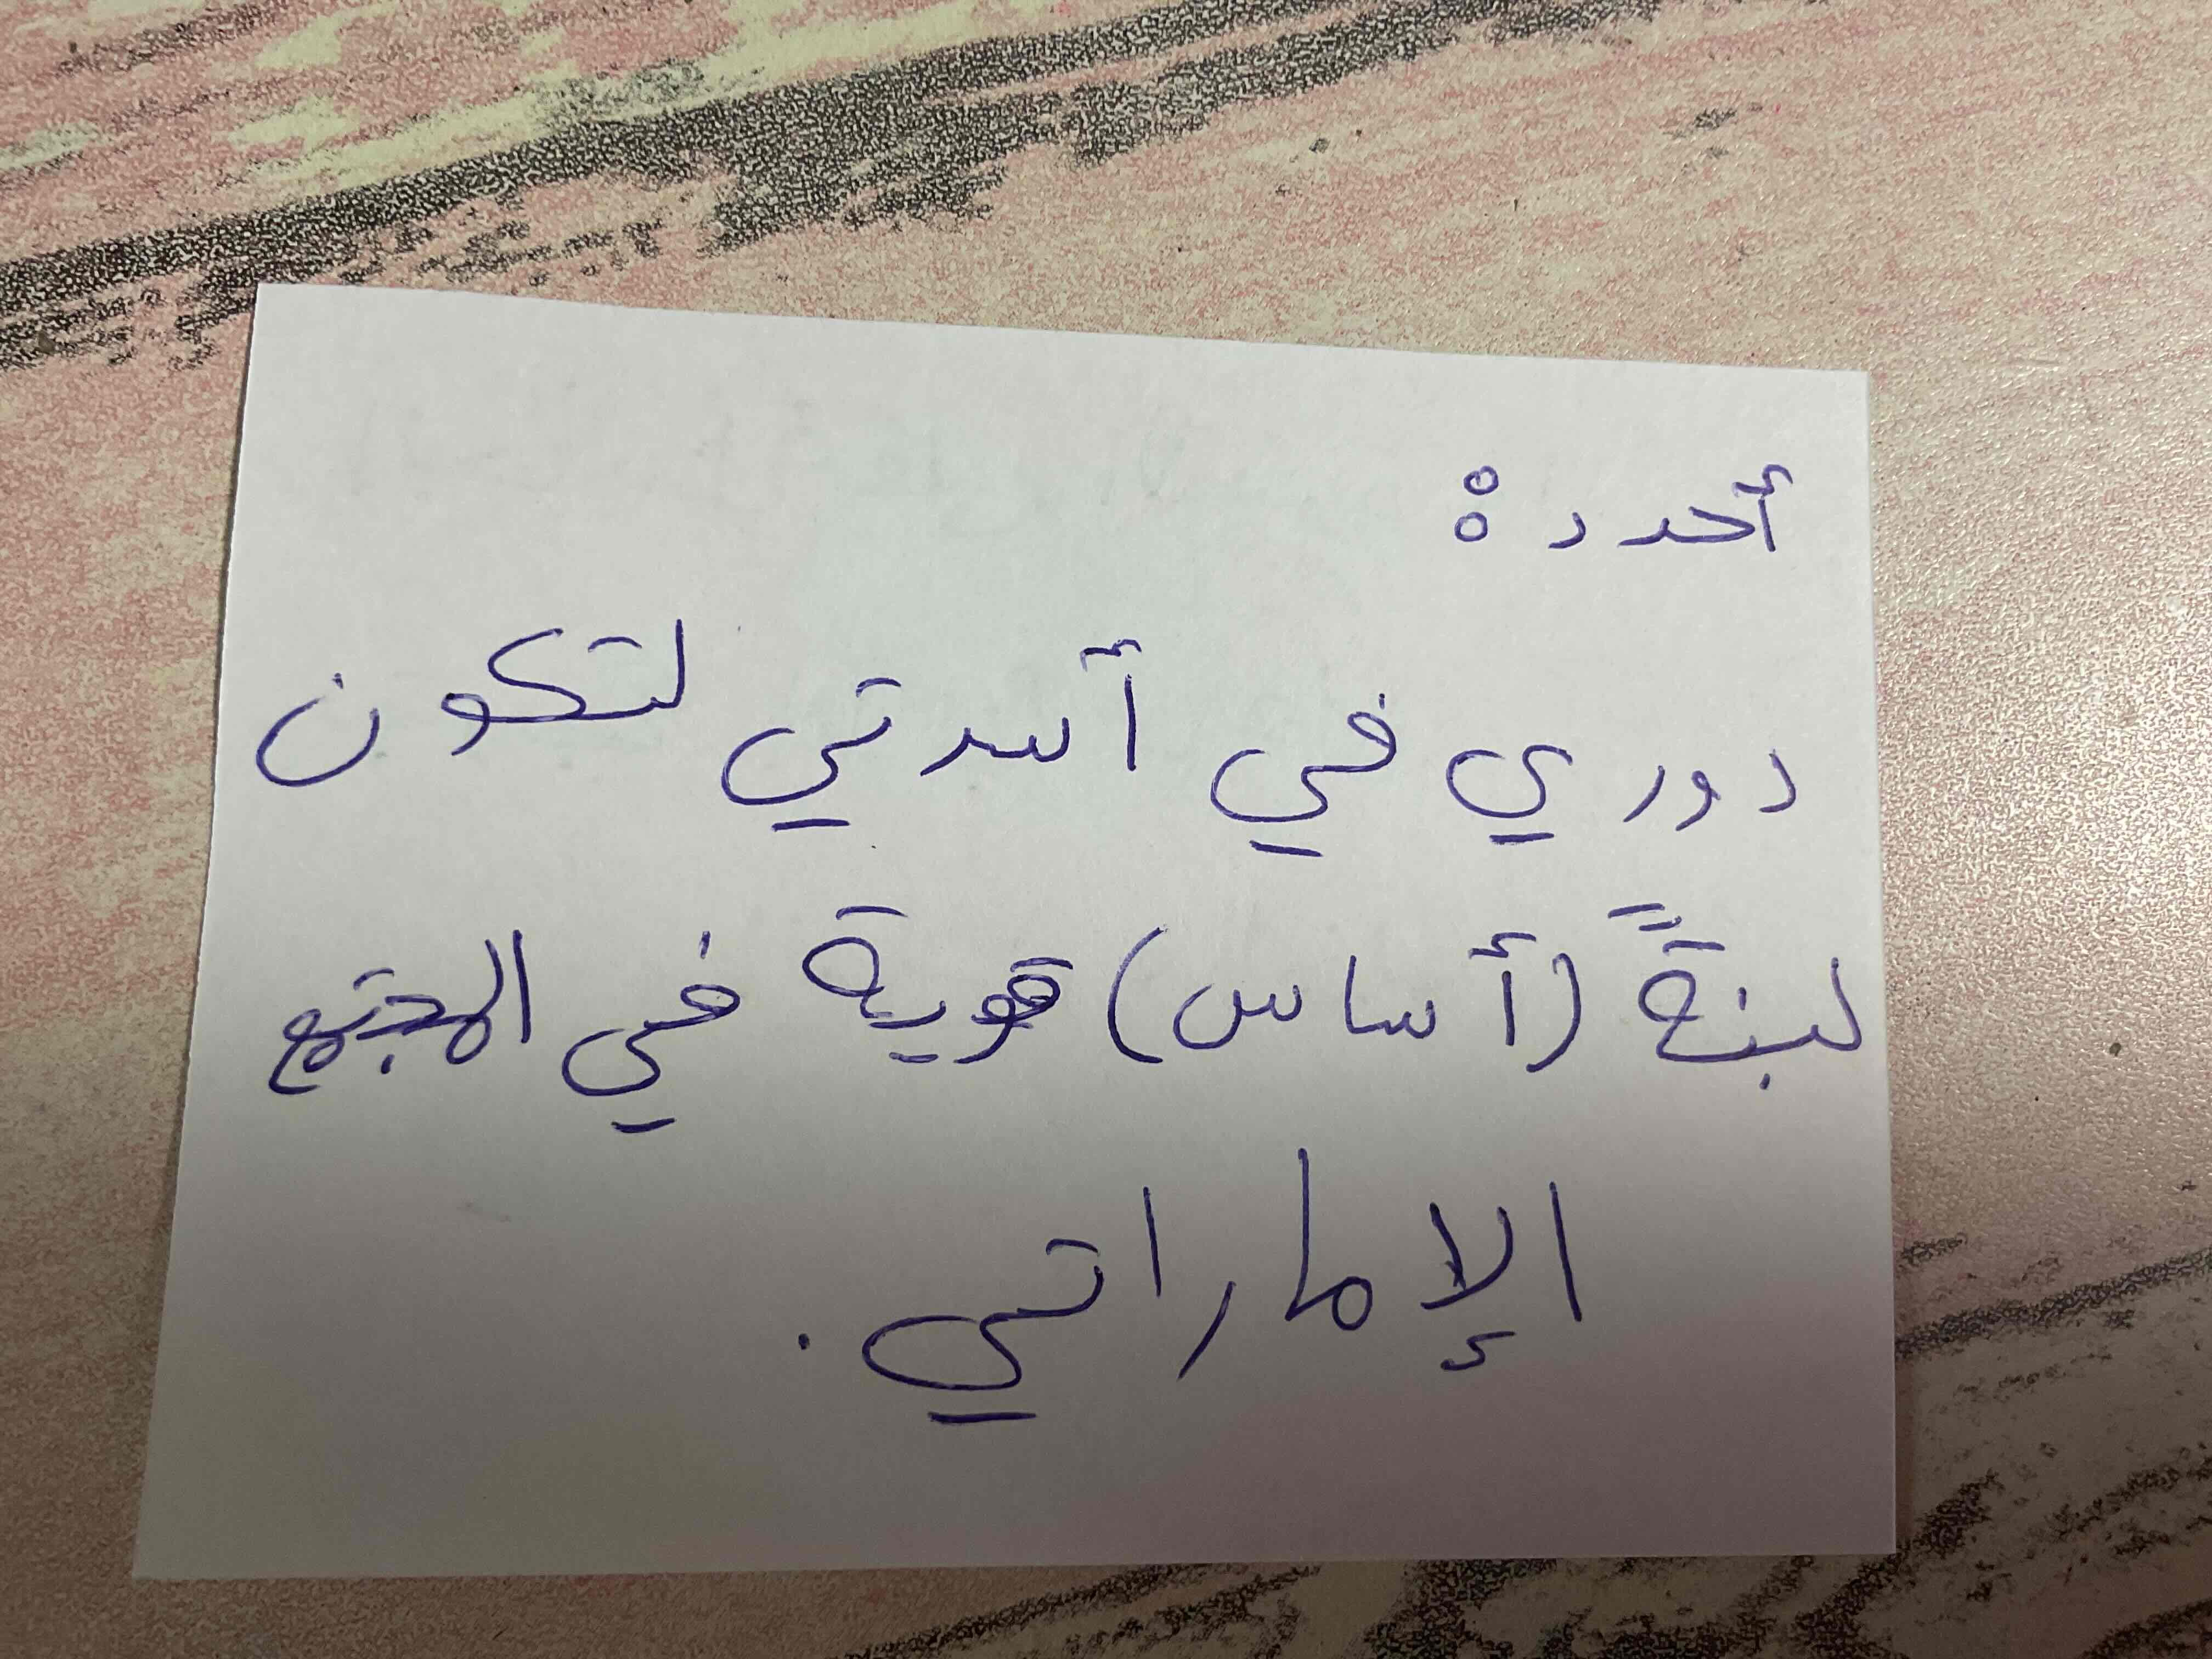 أحدد:
دوري في أسرتي لتكون
لبنةً (أساس) قوية في المجتمع
الإماراتي.